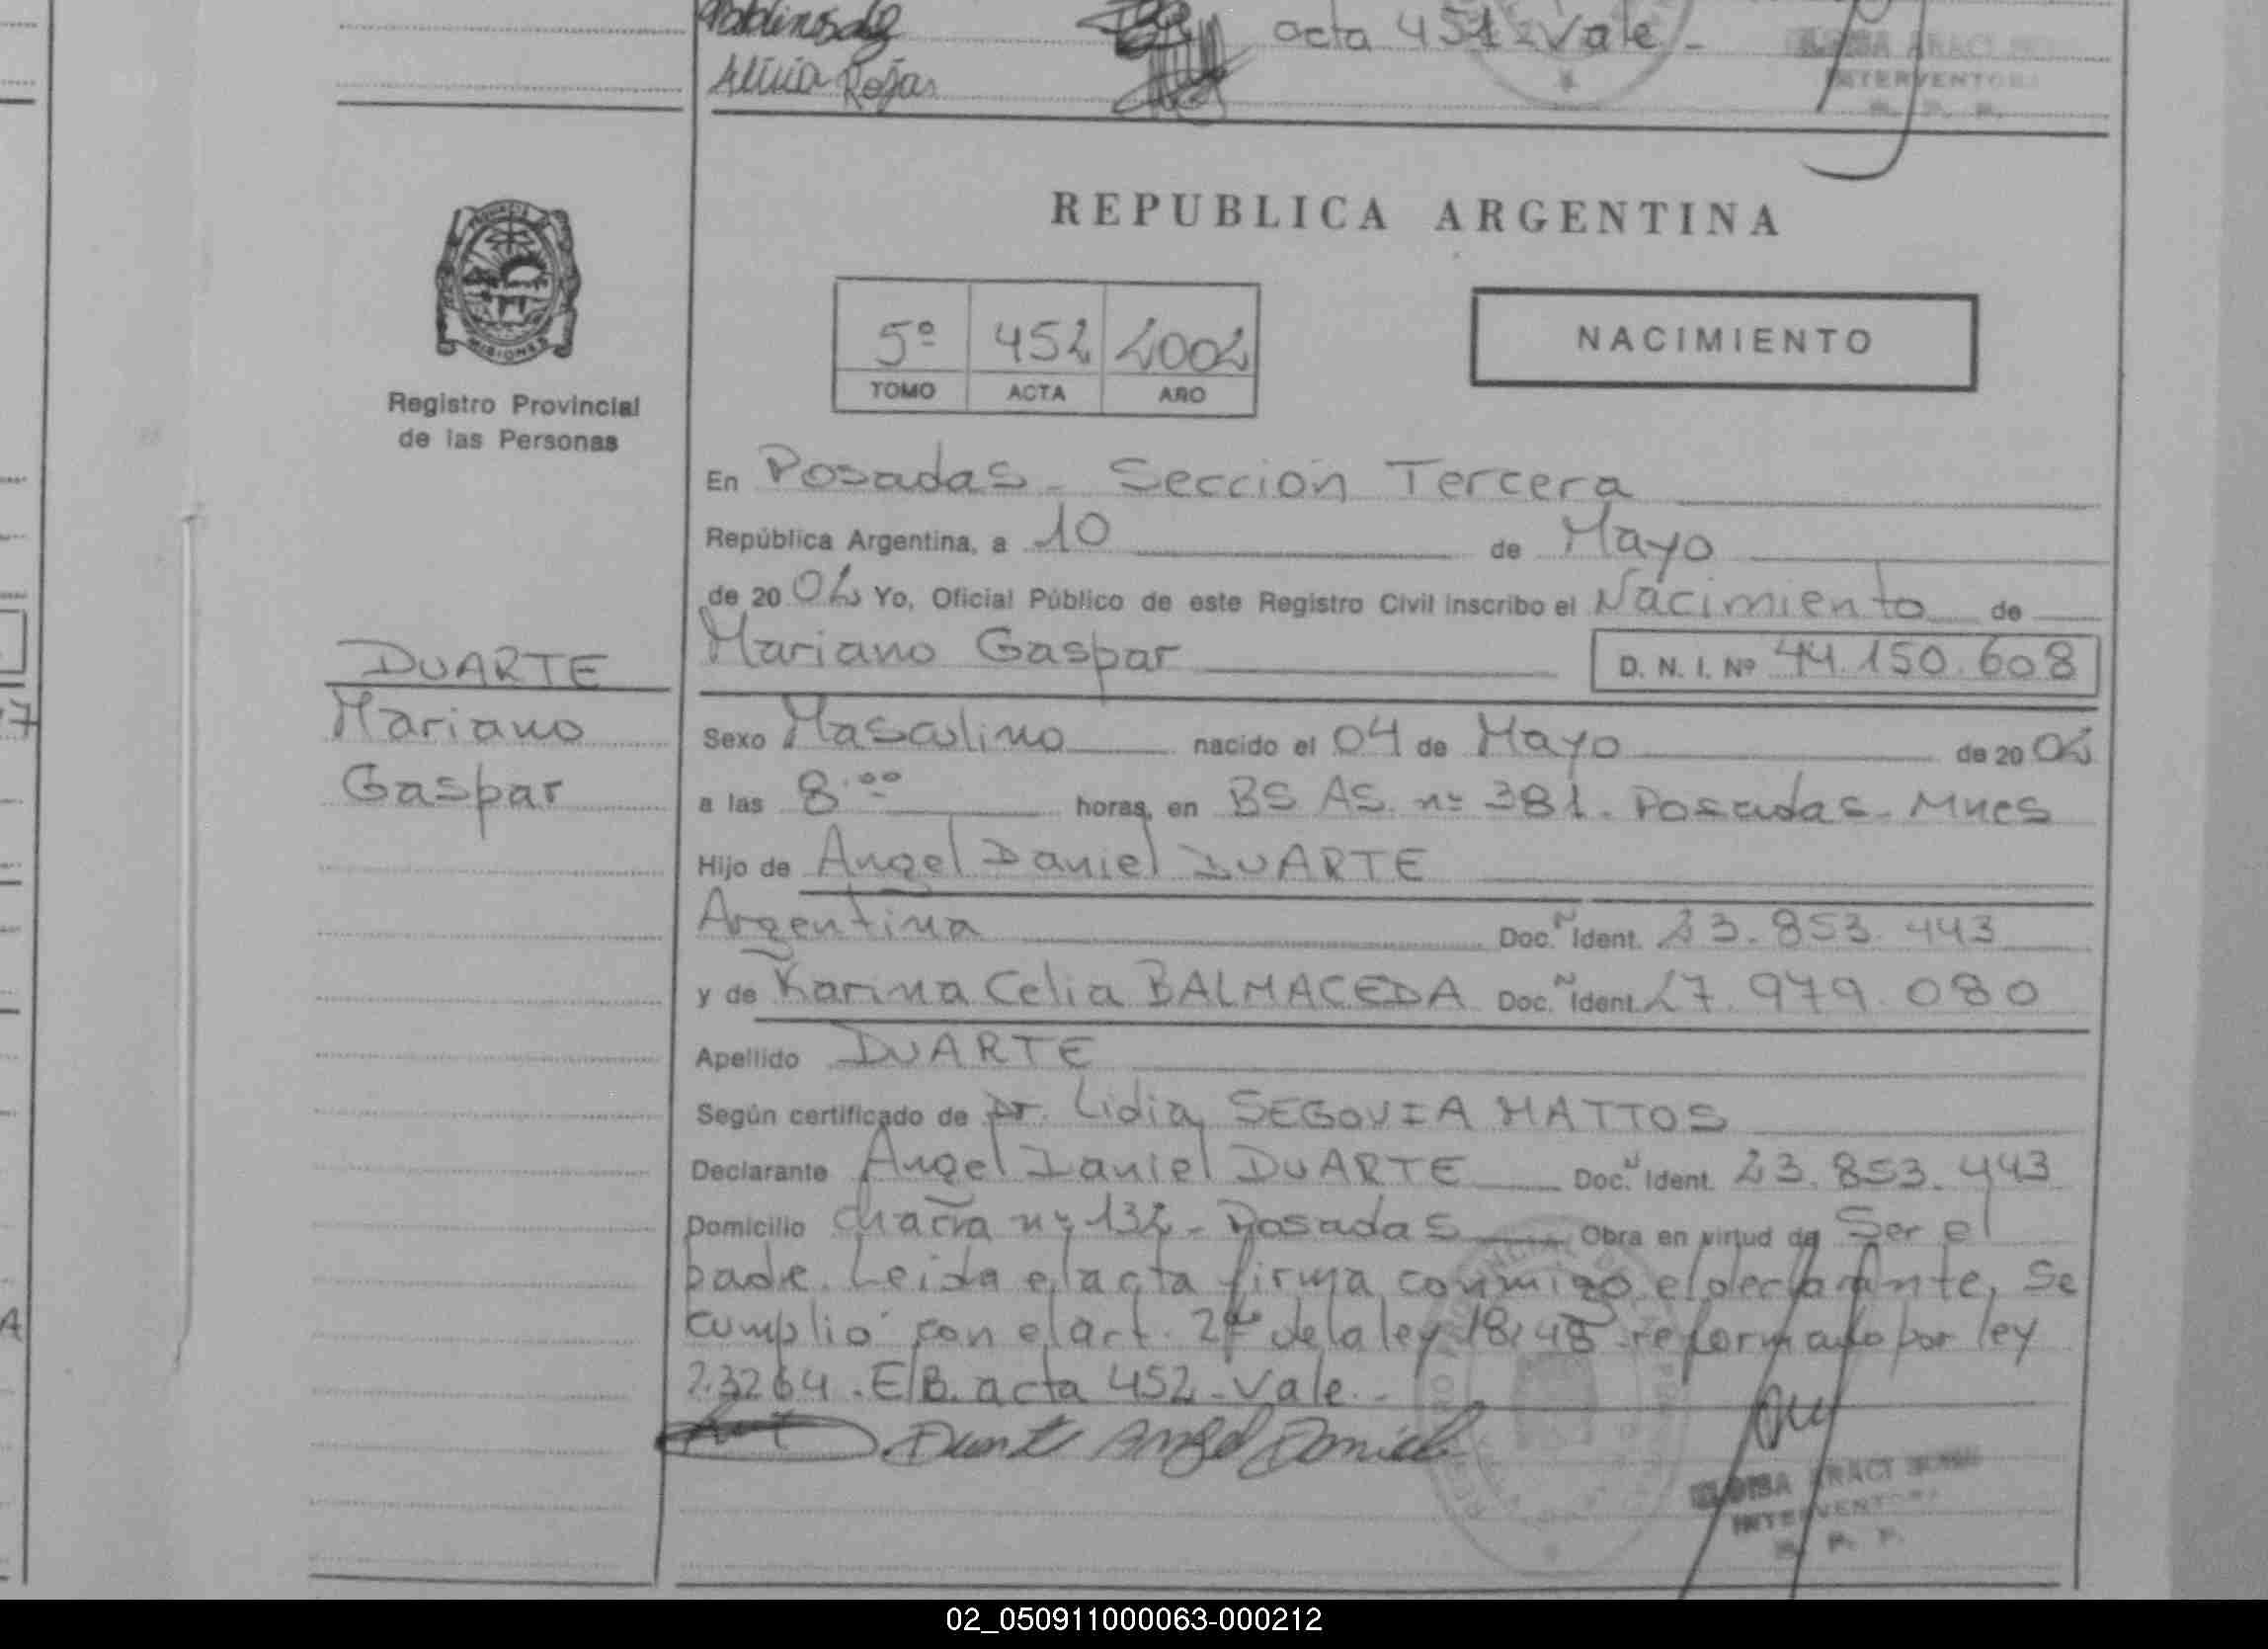 acta 451 - Vale. -
Alicia Rojas
INTERVENTORA
R. P. P.
MISIONES
Registro Provincial
de las Personas
REPUBLICA ARGENTINA
5º 452 2002
TOMO ACTA AÑO
NACIMIENTO
En Posadas - Sección Tercera
República Argentina, a 10 de Mayo
de 20 02 Yo, Oficial Público de este Registro Civil inscribo el Nacimiento de
Mariano Gaspar D. N. I. Nº 44.150.608
DUARTE
Mariano
Gaspar
Sexo Masculino nacido el 04 de Mayo de 20 02
a las 8.00 horas, en BS AS. nº 381. Posadas - Mnes
Hijo de Angel Daniel DUARTE
Argentina Doc. Ident. 23.853.443
y de Karina Celia BALMACEDA Doc. Ident. 27.979.080
Apellido DUARTE
Según certificado de Dr. Lidia SEGOVIA MATTOS
Declarante Angel Daniel DUARTE Doc. Ident. 23.853.443
Domicilio chacra nº 132 - Posadas Obra en virtud de Ser el
padre. Leida el acta firma conmigo el declarante, Se
cumplio con el art. de la ley reformado por ley
23264. E/B. acta 452 - Vale. -
Duarte Angel Daniel
ARACI
INTERVENTORA
R. P. P.
02_050911000063-000212